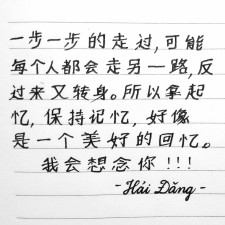 一步一步的走过, 可能
每个人都会走另一路, 反
过来又转身。所以拿起
忆, 保持记忆, 好像
是一个美好的回忆。
我会想念你 !!!
- Hải Dăng -